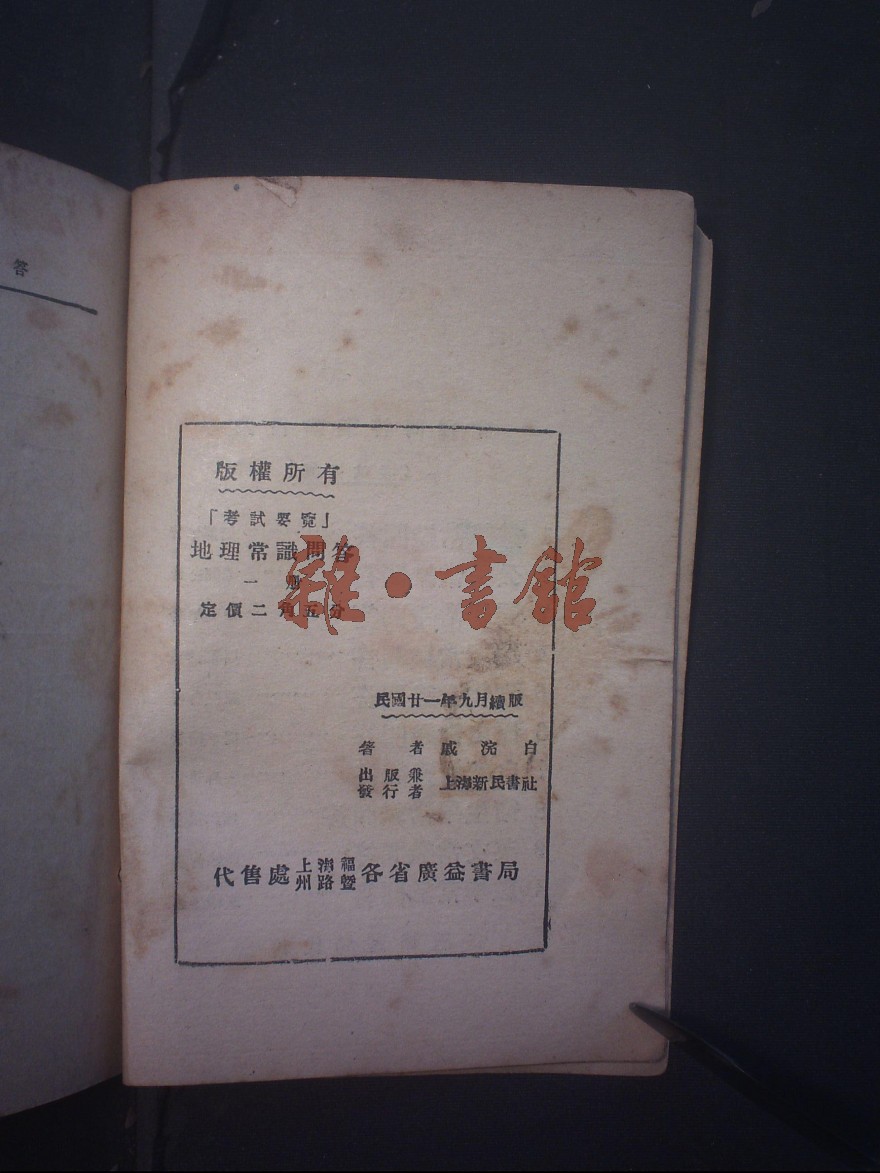 答
版權所有
「考試要覽」
地理常識問答
一册
定價二角五分
雜·書館
民國廿一年九月續版
著者戚浣白
出版兼
發行者
上海新民書社
代售處上海福州路暨各省廣益書局